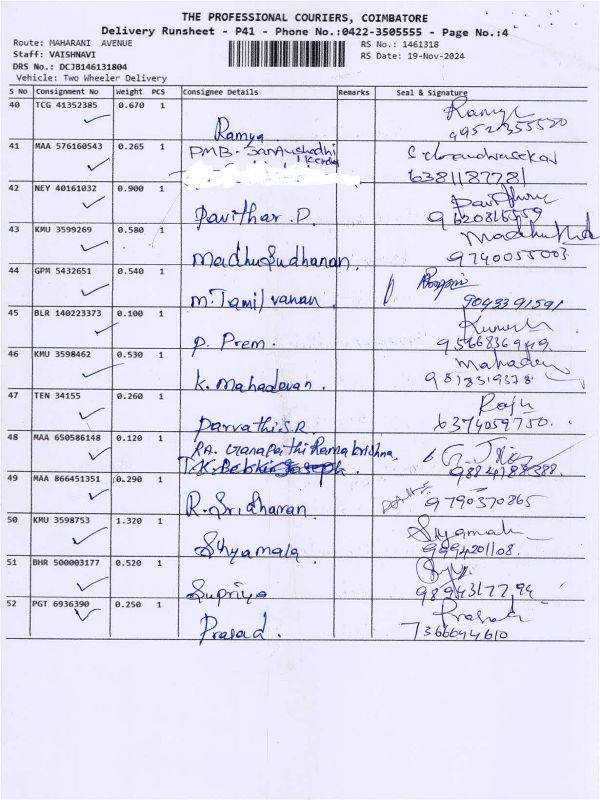 THE PROFESSIONAL COURIERS, COIMBATORE
Delivery Runsheet - P41 - Phone No.:0422-3505555 - Page No.:4
Route: MAHARANI AVENUE
RS No.: 1461318
Staff: VAISHNAVI
RS Date: 19-Nov-2024
DRS No.: DCJB146131804
Vehicle: Two Wheeler Delivery
S No Consignment No Weight PCS Consignee Details Remarks Seal & Signature
40 TCG 41352385 0.670 1 Ramya Ramya
41 MAA 576160543 0.265 1 PMB- Janaushadhi
6381187781
42 NEY 40161032 0.900 1 Pavithar.D
43 KMU 3599269 0.580 1 Madhusudhanan.
9740055003
44 GPM 5432651 0.540 1 M.Tamilvanan
9043391591
45 BLR 140223373 0.100 1 P. Prem.
46 KMU 3598462 0.530 1 K. Mahadevan.
47 TEN 34155 0.260 1 Parvathi S.R. Raju
6374059750.
48 MAA 650586148 0.120 1 RA. Ganapathi Rama krishna
49 MAA 866451351 0.290 1 R. Sridharan.
9790370865
50 KMU 3598753 1.320 1 Shyamala
9994201108.
51 BHR 500003177 0.520 1 Supriya
52 PGT 6936390 0.250 1 Prasad. Prasad
7366644610